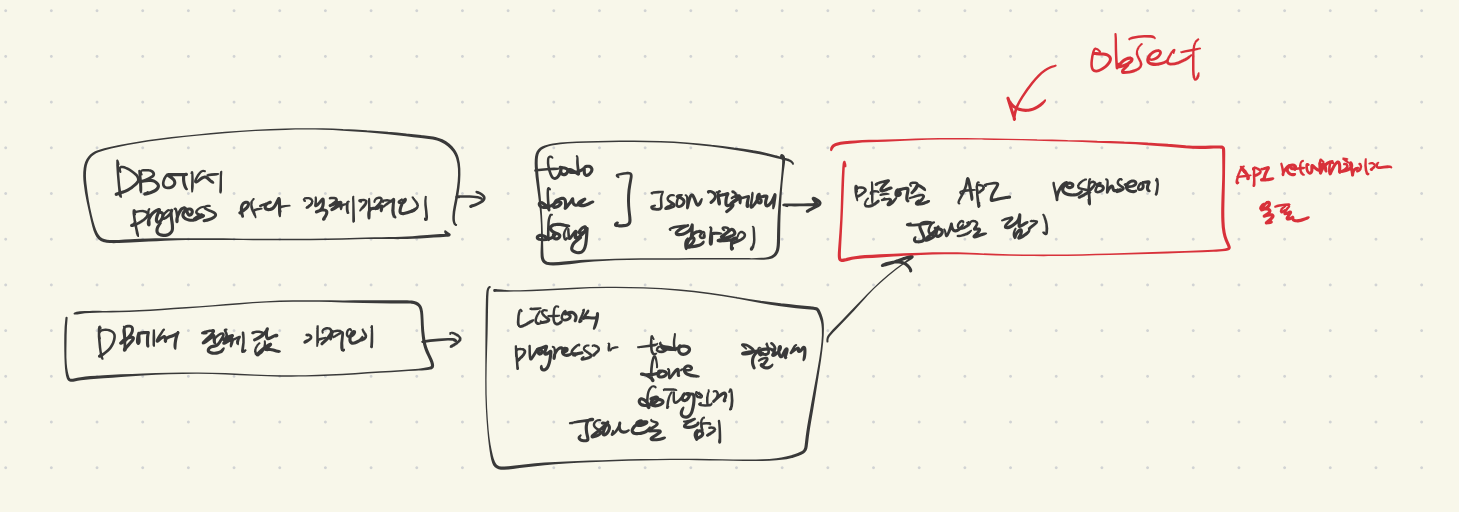 object
DB에서
progress 마다 객체가져오기
todo
done
doing
Json 객체에
담아주기
만들어준 API response에
Json으로 담기
API return
오른
DB에서 전체값 가져오기
List에서
progress가 todo 구별해서
done
doing인지
Json으로 담기